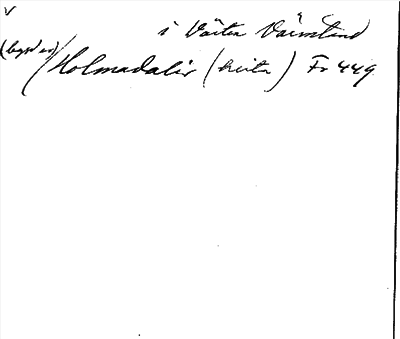 v
i Västra Värmland
(bygd av) / Holmadalir (heita) Fr 449